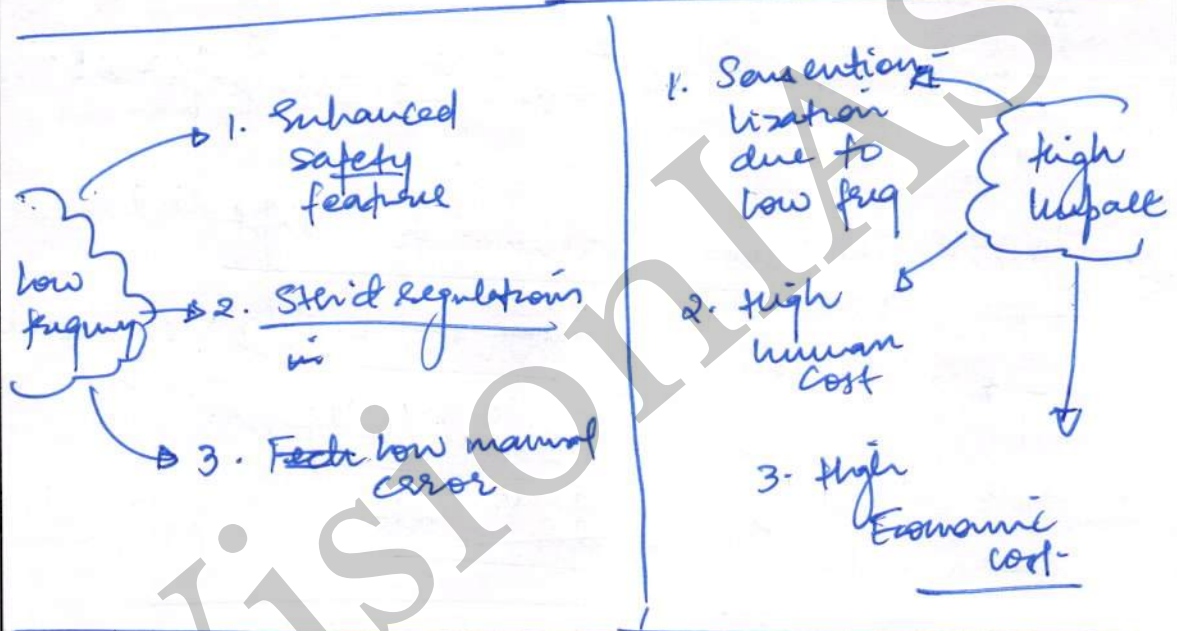 Low
frequency
1. Enhanced
safety
feature
2. Strict regulations
in
3. Low manual
error
1. Sensention-
lization
due to
low freq
High
Impact
2. High
human
cost
3. High
Economic
cost
VisionIAS